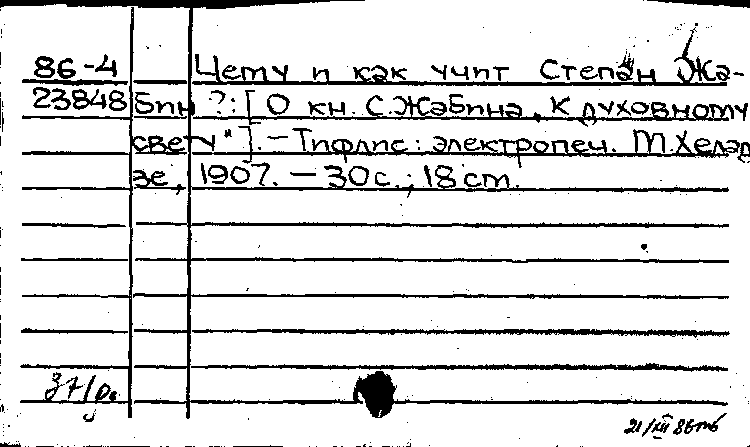 86-4 Чему и как учит Степан Жа-
23848 бин?: [О кн. С.Жабина „К духовному
свету"]. — Тифлис: электропеч. М.Хелад
зе, 1907. — 30 с.; 18 см.
21/III 86